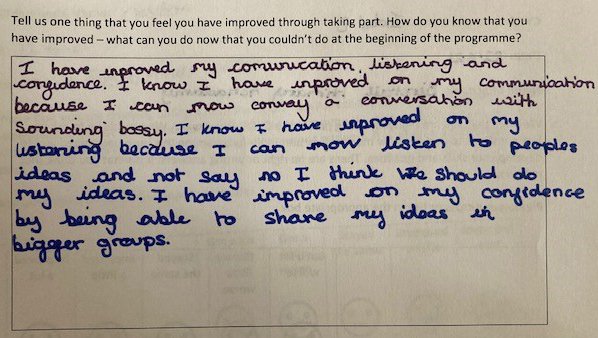 Tell us one thing that you feel you have improved through taking part. How do you know that you
have improved – what can you do now that you couldn't do at the beginning of the programme?
I have inproved my comunication, listening and
congidence. I know I have inproved on my communication
because I can now convay a conversation with
Sounding bossy. I know I have inproved on my
listening because I can now listen to peoples
ideas and not say no I think we should do
my ideas. I have improved on my confidence
by being able to share my ideas in
bigger groups.